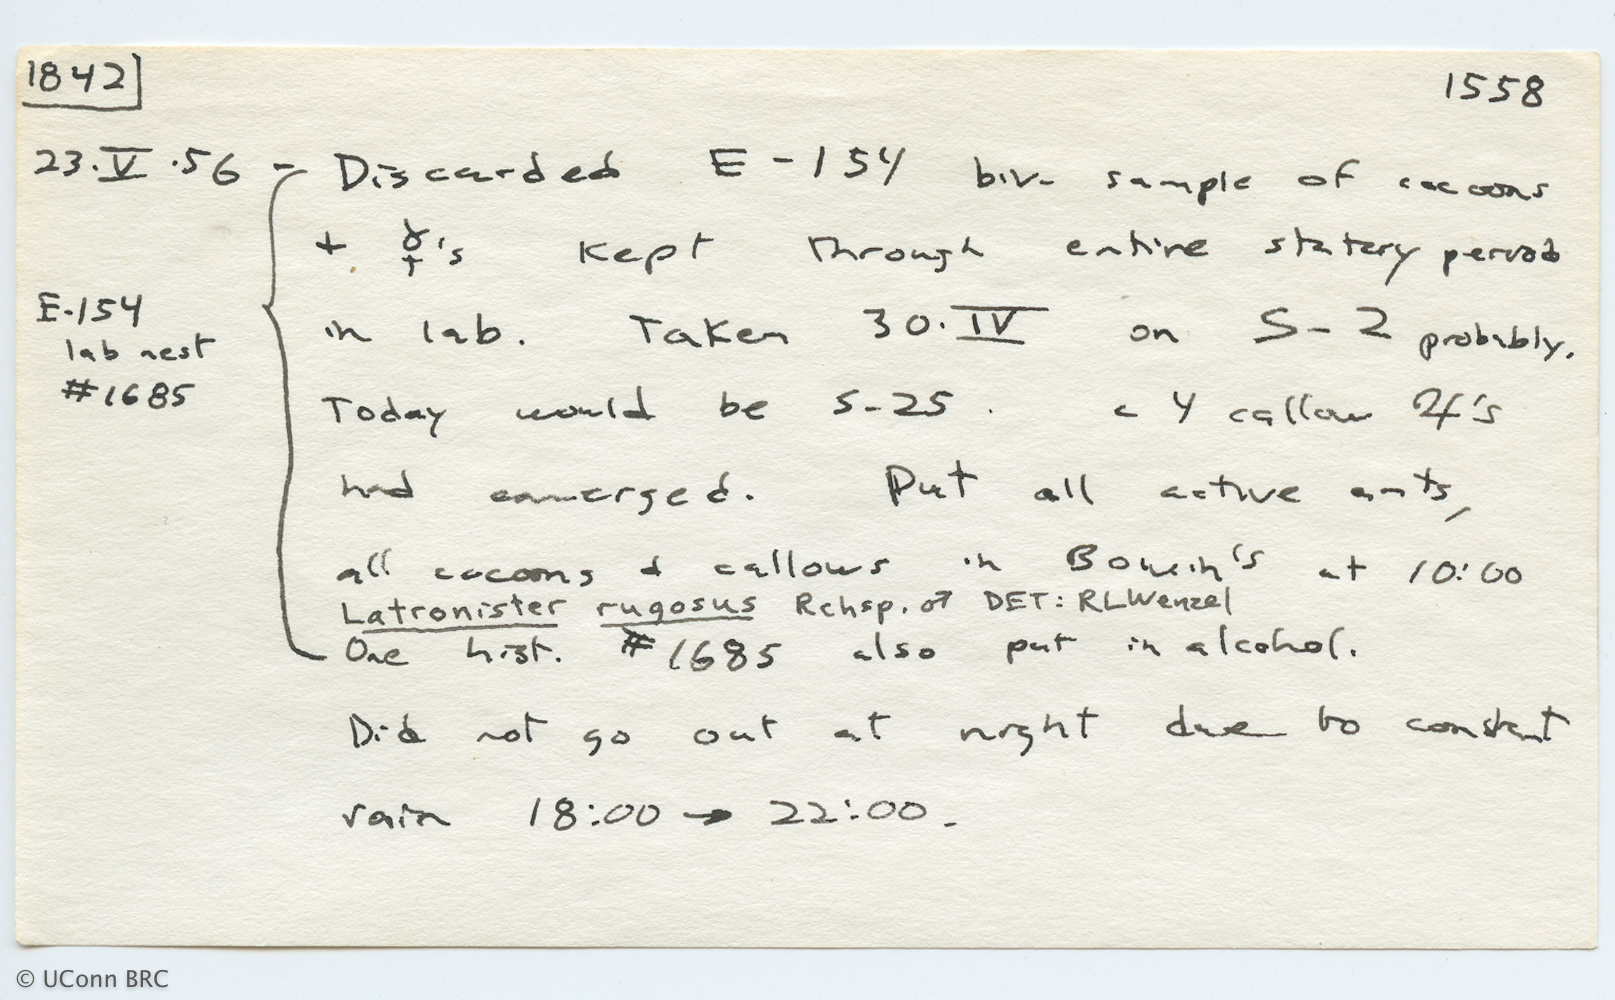 1842
1558
23.V.56 - Discarded E-154 biv. sample of cocoons
+ ☿'s kept through entire statary period
E-154
lab nest
#1685
in lab. Taken 30.IV on S-2 probably.
Today would be S-25. c 4 callow ☿'s
had emerged. Put all active ants,
all cocoons & callows in Bouin's at 10:00
Latronister rugosus Rchsp. ♂ DET: RLWenzel
One hist. #1685 also put in alcohol.
Did not go out at night due to constant
rain 18:00 → 22:00.
© UConn BRC